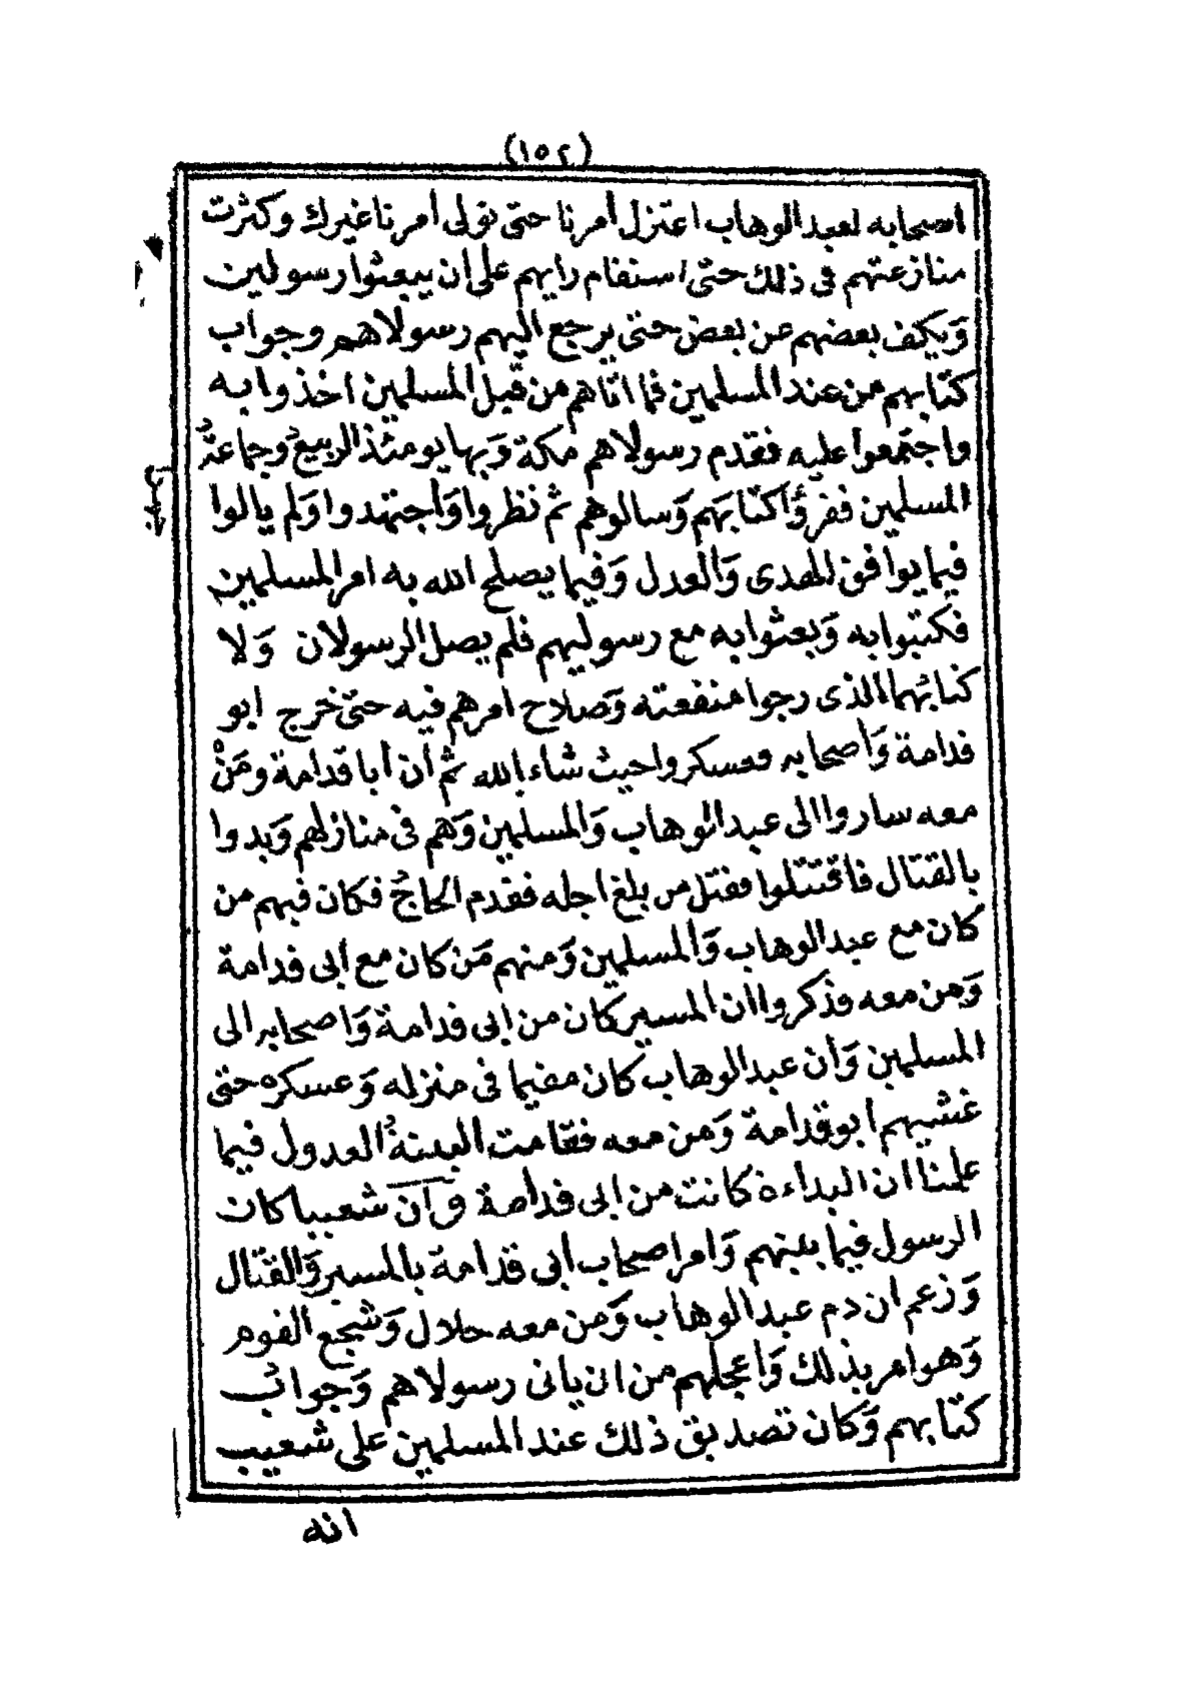 (١٥٢)
اصحابه لعبد الوهاب اعتزل أمرنا حتى نولى أمرنا غيرك وكثرت
منازعتهم فى ذلك حتى استقام رايهم على ان يبعثوا رسولين
وَيكف بعضهم عن بعض حتى يرجع اليهم رسولاهم وجواب
كتابهم من عند المسلمين فما اتاهم من قبل المسلمين اخذوا به
واجتمعوا عليه فقدم رسولاهم مكة وَبها يومئذ الربيعُ وجماعةُ
المسلمين فقرؤا كتابهم وَسالوهم ثم نظروا وَاجتهدوا وَلم يالوا
فيما يوافق الهدى وَالعدل وَفيما يصلح الله به امر المسلمين
فكتبوا به وَبعثوا به مع رسوليهم فلم يصل الرسولان وَلا
كتابُهما الذى رجوا منفعته وَصلاح امرهم فيه حتى خرج ابو
قدامة وَاصحابه فعسكروا حيث شاء الله ثم أن أبا قدامة ومَنْ
معه ساروا الى عبد الوهاب وَالمسلمين وَهم فى منازلهم وَبدوا
بالقتال فاقتتلوا فقتل من بلغ اجله فقدم الحاجُ فكان فيهم من
كان مع عبد الوهاب وَالمسلمين وَمنهم مَن كان مع أبى قدامة
وَمن معه فذكروا ان المسير كان من ابى قدامة وَاصحابه الى
المسلمين وَأن عبد الوهاب كان مقيما فى منزله وَعسكره حتى
غشيهم ابو قدامة وَمن معه فقامت البينةُ العدول فيما
علمنا ان البداءة كانت من ابى قدامة وَأن شعيبا كان
الرسول فيما بينهم وَامر اصحاب أبى قدامة بالمسير وَالقتال
وَزعم ان دم عبد الوهاب وَمن معه حلال وَشجع القوم
وَهو امر بذلك وَاعجلهم من ان ياتى رسولاهم وَجوابُ
كتابهم وَكان تصديق ذلك عند المسلمين على شعيب
انه